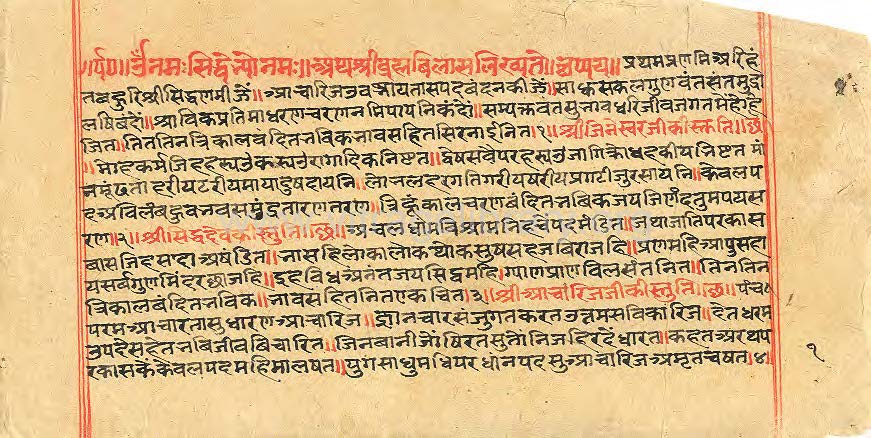 ॐनमःसिद्धेभ्योनमः॥अथश्रीब्रह्मबिलासलिख्यते॥छप्पय॥प्रथमप्रणमिअरिहं
तबहुरिश्रीसिद्धणमीजें॥आचारिजउवझायतासपदवंदनकीजें॥साधुसकलगुणवंतसंतमुद्रा
लषिबंदों॥श्राविकप्रतिमाधरणचरणनमिपायनिकंदों॥सम्यक्तवतसुभावधरिजीवजगतमेंहोंहि
जिते॥तिततिनत्रिकालवंदितभविकभावसहितसिरनाइनित॥१॥श्रीजिनेस्वरजीकीस्तुति॥छ॥
मोहकर्मजिहहस्यउकस्यउरागादिकनिष्टत॥द्वेषसवैपरहस्यउजागिक्रोधहकीयनिष्टत मां
नमूंढताहरीयटरीयमायादुषदायनि॥लोभलहरगतिगरीयषरीयप्रगटीजुरसायनि॥केवलप
दअविलंबहुवभवसमुंद्रतारणतरण॥त्रिहूंकालचरणबंदितभविकजयजिणंदतुमपयस
रण॥२॥श्रीसिद्धदेवकीस्तुति॥छ॥अचलधांमविश्रांमनिहचैपदमंडित॥जथाजातिपरकास
बासजिहसदाअषंडित॥भासहिलोकालोकथोकसुषसहजबिराजहि॥प्रणमहिआपुसहा
यसर्बगुणमिंदरछाजहि॥इहविधअनंतजयसिद्धमहि॥ग्यानप्रानविलसंतनित॥तिनतिन
त्रिकालबंदितभविक॥भावसहितनितएकचित॥३॥श्रीआचारिजजीकीस्तुति॥छ॥पंच
परमआचारतासुधारणआचारिज॥ज्ञानचारसंजुगतकरतउत्तमसवकारिज॥देतधरम
उपदेसहेतभविजीवविचारित॥जिनबानीजोंषिरतसुतोंनिजहिरदेंधारत॥कहतअरथप
रकासकेकेवलपदमहिमालषत॥युगसाधुमधिपरधांनपदसुआचारिजअमृतचषत॥४॥
१